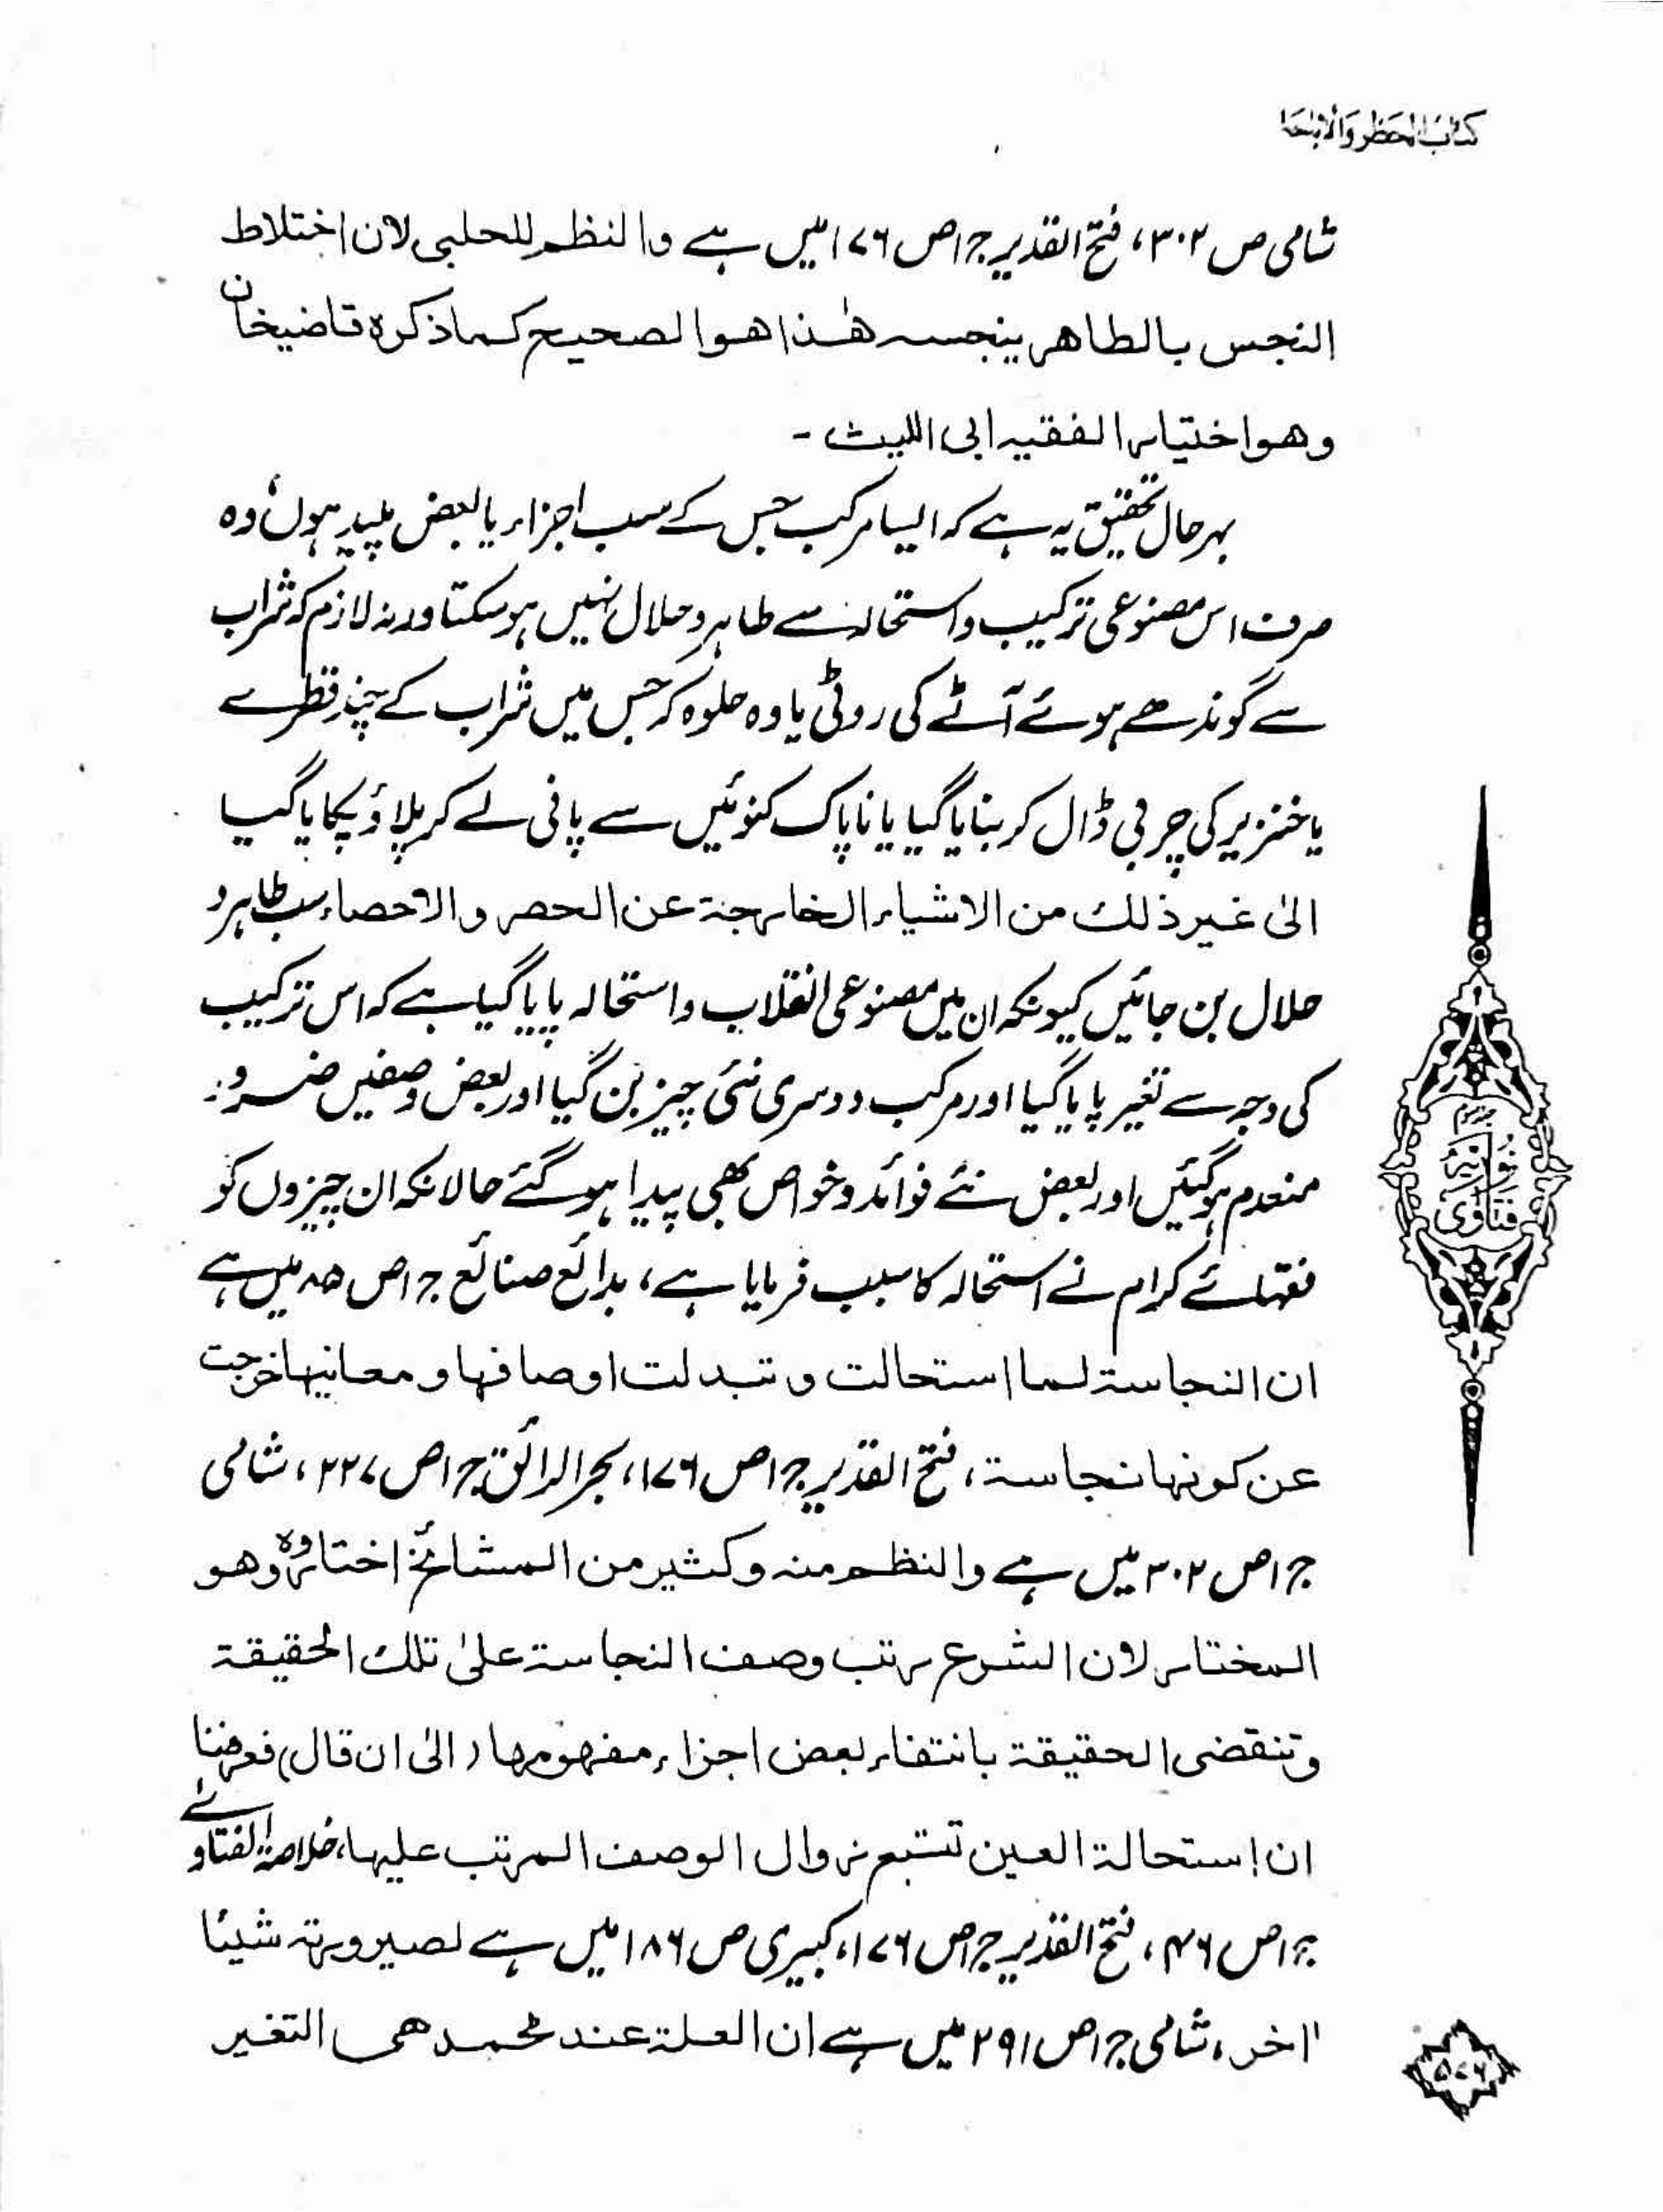 كتاب الحظر والاباحة
شامی ص ۳۰۲، فتح القدیر ج ۱ ص ۱۷۶ میں ہے والنظم للحلبی لان اختلاط
النجس بالطاهر ینجسه هٰذا هو الصحیح کما ذکره قاضیخان
وهو اختیار الفقیه ابی اللیث -
بہرحال تحقیق یہ ہے کہ ایسا مرکب جس کے سب اجزاء یا بعض پلید ہوں، وہ
صرف اس مصنوعی ترکیب و استحالہ سے طاہر و حلال نہیں ہو سکتا ورنہ لازم کہ شراب
سے گوندھے ہوئے آٹے کی روٹی یا وہ حلوہ کہ جس میں شراب کے چند قطرے
یا خنزیر کی چربی ڈال کر بنایا گیا یا ناپاک کنوئیں سے پانی لے کر پلاؤ پکایا گیا
الیٰ غیر ذلك من الاشیاء الخارجة عن الحصر والاحصاء سب طاہر و
حلال بن جائیں کیونکہ ان میں مصنوعی انقلاب و استحالہ پایا گیا ہے کہ اس ترکیب
کی وجہ سے تغیر پایا گیا اور مرکب دوسری نئی چیز بن گیا اور بعض وصفیں ضرور
منعدم ہو گئیں اور بعض نئے فوائد و خواص بھی پیدا ہو گئے حالانکہ ان چیزوں کو
فقہائے کرام نے استحالہ کا سبب فرمایا ہے، بدائع صنائع ج ۱ ص ۸۵ میں ہے
ان النجاسة لما استحالت و تبدلت اوصافها و معانیها خرجت
عن کونها نجاسة، فتح القدیر ج ۱ ص ۱۷۶، بحر الرائق ج ۱ ص ۲۲۷، شامی
ج ۱ ص ۳۰۲ میں ہے والنظم منه وکثیر من المشائخ اختاروه وهو
المختار لان الشرع رتب وصف النجاسة علیٰ تلك الحقیقة
وتنقضی الحقیقة بانتفاء بعض اجزاء مفهومها (الیٰ ان قال) فعرفنا
ان استحالة العین تستتبع زوال الوصف المرتب علیها، خلاصۃ الفتاوےٰ
ج ۱ ص ۴۶، فتح القدیر ج ۱ ص ۱۷۶، کبیری ص ۱۸۶ میں ہے لصیرورته شیئا
اٰخر، شامی ج ۱ ص ۲۹۱ میں ہے ان العلة عند محمد هی التغیر
فتاویٰ نوریہ
۵۷۶